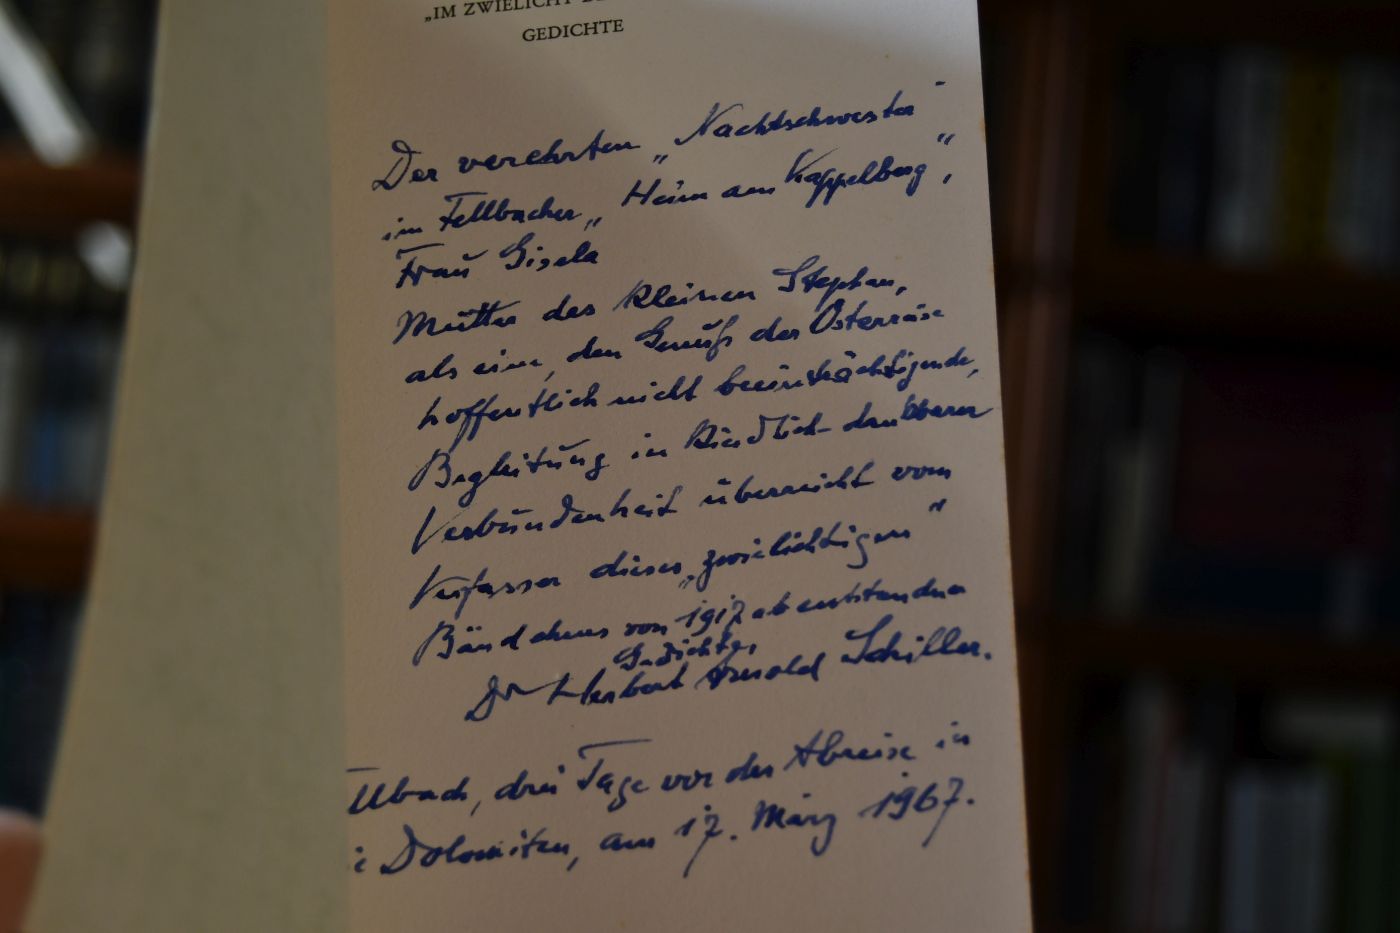 „IM ZWIELICHT
GEDICHTE
Der verehrten „Nachtschwester"
im Fellbacher „Heim am Kappelberg",
Frau Gisela
Mutter des kleinen Stephan,
als eine, den Genuß der Osterreise
hoffentlich nicht beeinträchtigende,
Begleitung in kindlich-dankbarer
Verbundenheit überreicht vom
Verfasser dieses „zwielichtigen"
Bändchens von 1917 ab entstandener
Gedichte,
Dr Herbert Arnold Schiller.
llbach, drei Tage vor der Abreise in
ie Dolomiten, am 17. März 1967.